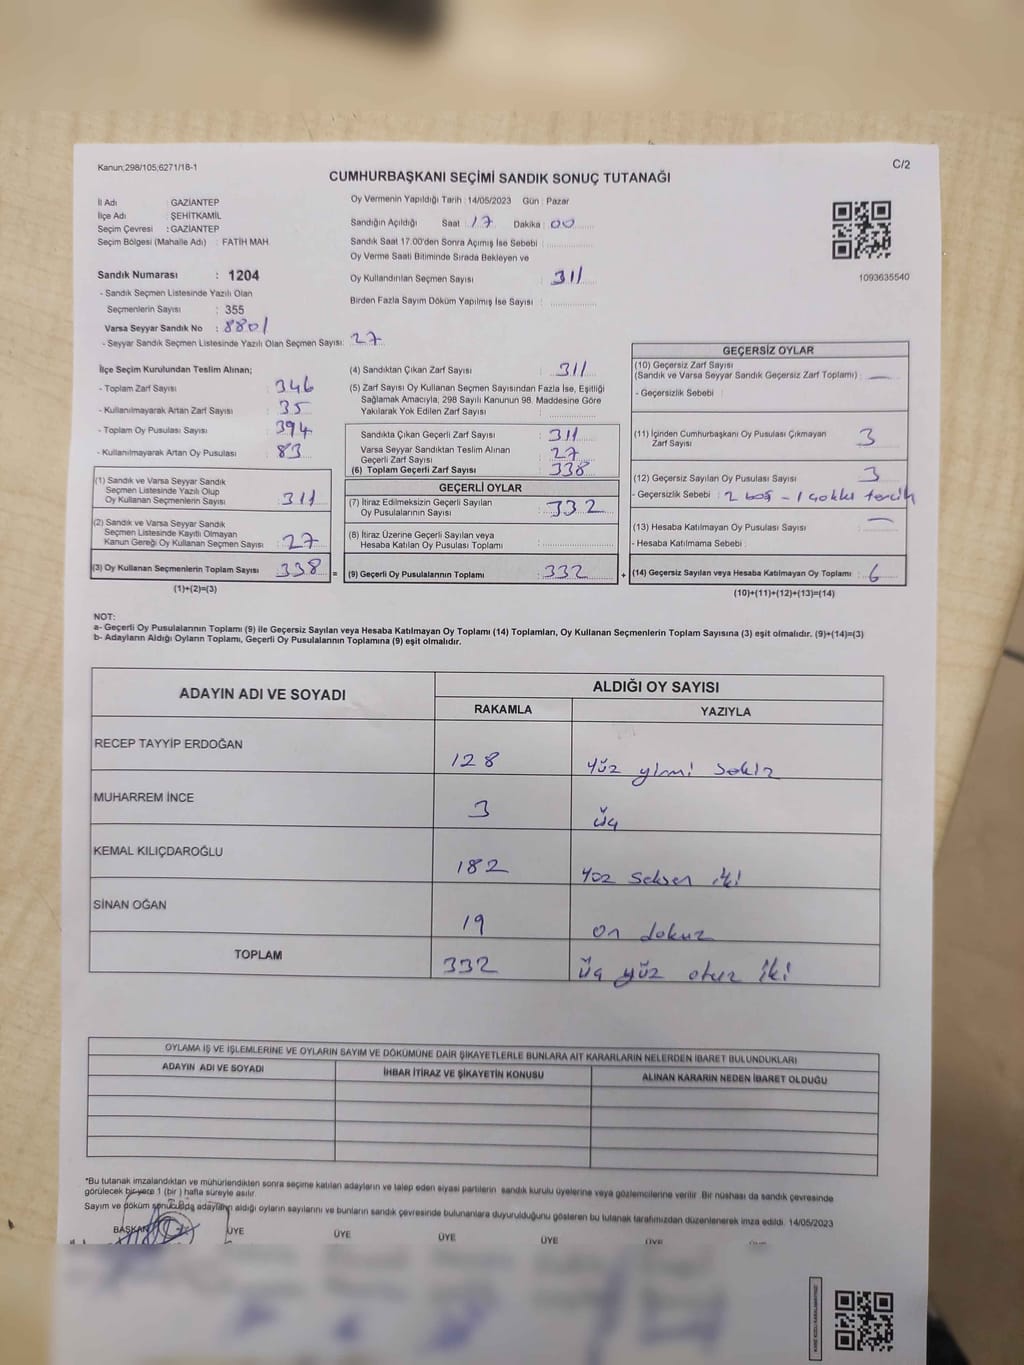 Kanun;298/105,6271/18-1
C/2
CUMHURBAŞKANI SEÇİMİ SANDIK SONUÇ TUTANAĞI
İl Adı : GAZİANTEP
İlçe Adı : ŞEHİTKAMİL
Seçim Çevresi : GAZİANTEP
Seçim Bölgesi (Mahalle Adı) : FATİH MAH.
Sandık Numarası : 1204
- Sandık Seçmen Listesinde Yazılı Olan
Seçmenlerin Sayısı : 355
Varsa Seyyar Sandık No : 8801
- Seyyar Sandık Seçmen Listesinde Yazılı Olan Seçmen Sayısı: 27
Oy Vermenin Yapıldığı Tarih : 14/05/2023 Gün : Pazar
Sandığın Açıldığı Saat : 17 Dakika : 00
Sandık Saat 17.00'den Sonra Açımış İse Sebebi :
Oy Verme Saati Bitiminde Sırada Bekleyen ve
Oy Kullandırılan Seçmen Sayısı : 311
Birden Fazla Sayım Döküm Yapılmış İse Sayısı :
1093635540
İlçe Seçim Kurulundan Teslim Alınan;
- Toplam Zarf Sayısı : 346
- Kullanılmayarak Artan Zarf Sayısı : 35
- Toplam Oy Pusulası Sayısı : 394
- Kullanılmayarak Artan Oy Pusulası : 83
(1) Sandık ve Varsa Seyyar Sandık
Seçmen Listesinde Yazılı Olup
Oy Kullanan Seçmenlerin Sayısı : 311
(2) Sandık ve Varsa Seyyar Sandık
Seçmen Listesinde Kayıtlı Olmayan
Kanun Gereği Oy Kullanan Seçmen Sayısı : 27
(3) Oy Kullanan Seçmenlerin Toplam Sayısı : 338
(1)+(2)=(3)
(4) Sandıktan Çıkan Zarf Sayısı : 311
(5) Zarf Sayısı Oy Kullanan Seçmen Sayısından Fazla İse, Eşitliği
Sağlamak Amacıyla, 298 Sayılı Kanunun 98. Maddesine Göre
Yakılarak Yok Edilen Zarf Sayısı :
Sandıkta Çıkan Geçerli Zarf Sayısı : 311
Varsa Seyyar Sandıktan Teslim Alınan
Geçerli Zarf Sayısı : 27
(6) Toplam Geçerli Zarf Sayısı : 338
GEÇERLİ OYLAR
(7) İtiraz Edilmeksizin Geçerli Sayılan
Oy Pusulalarının Sayısı : 332
(8) İtiraz Üzerine Geçerli Sayılan veya
Hesaba Katılan Oy Pusulası Toplamı :
= (9) Geçerli Oy Pusulalarının Toplamı : 332
GEÇERSİZ OYLAR
(10) Geçersiz Zarf Sayısı
(Sandık ve Varsa Seyyar Sandık Geçersiz Zarf Toplamı) : —
- Geçersizlik Sebebi :
(11) İçinden Cumhurbaşkanı Oy Pusulası Çıkmayan
Zarf Sayısı : 3
(12) Geçersiz Sayılan Oy Pusulası Sayısı : 3
- Geçersizlik Sebebi : 2 boş - 1 çoklu tercih
(13) Hesaba Katılmayan Oy Pusulası Sayısı : —
- Hesaba Katılmama Sebebi :
+ (14) Geçersiz Sayılan veya Hesaba Katılmayan Oy Toplamı : 6
(10)+(11)+(12)+(13)=(14)
NOT:
a- Geçerli Oy Pusulalarının Toplamı (9) ile Geçersiz Sayılan veya Hesaba Katılmayan Oy Toplamı (14) Toplamları, Oy Kullanan Seçmenlerin Toplam Sayısına (3) eşit olmalıdır. (9)+(14)=(3)
b- Adayların Aldığı Oyların Toplamı, Geçerli Oy Pusulalarının Toplamına (9) eşit olmalıdır.
ADAYIN ADI VE SOYADI
ALDIĞI OY SAYISI
RAKAMLA YAZIYLA
RECEP TAYYİP ERDOĞAN 128 yüz yirmi sekiz
MUHARREM İNCE 3 üç
KEMAL KILIÇDAROĞLU 182 yüz seksen iki
SİNAN OĞAN 19 on dokuz
TOPLAM 332 üç yüz otuz iki
OYLAMA İŞ VE İŞLEMLERİNE VE OYLARIN SAYIM VE DÖKÜMÜNE DAİR ŞİKAYETLERLE BUNLARA AİT KARARLARIN NELERDEN İBARET BULUNDUKLARI
ADAYIN ADI VE SOYADI İHBAR İTİRAZ VE ŞİKAYETİN KONUSU ALINAN KARARIN NEDEN İBARET OLDUĞU
*Bu tutanak imzalandıktan ve mühürlendikten sonra seçime katılan adayların ve talep eden siyasi partilerin sandık kurulu üyelerine veya gözlemcilerine verilir. Bir nüshası da sandık çevresinde
görülecek bir yere 1 (bir) hafta süreyle asılır.
Sayım ve döküm sonucunda adayların aldığı oyların sayılarını ve bunların sandık çevresinde bulunanlara duyurulduğunu gösteren bu tutanak tarafımızdan düzenlenerek imza edildi. 14/05/2023
BAŞKAN ÜYE ÜYE ÜYE ÜYE ÜYE